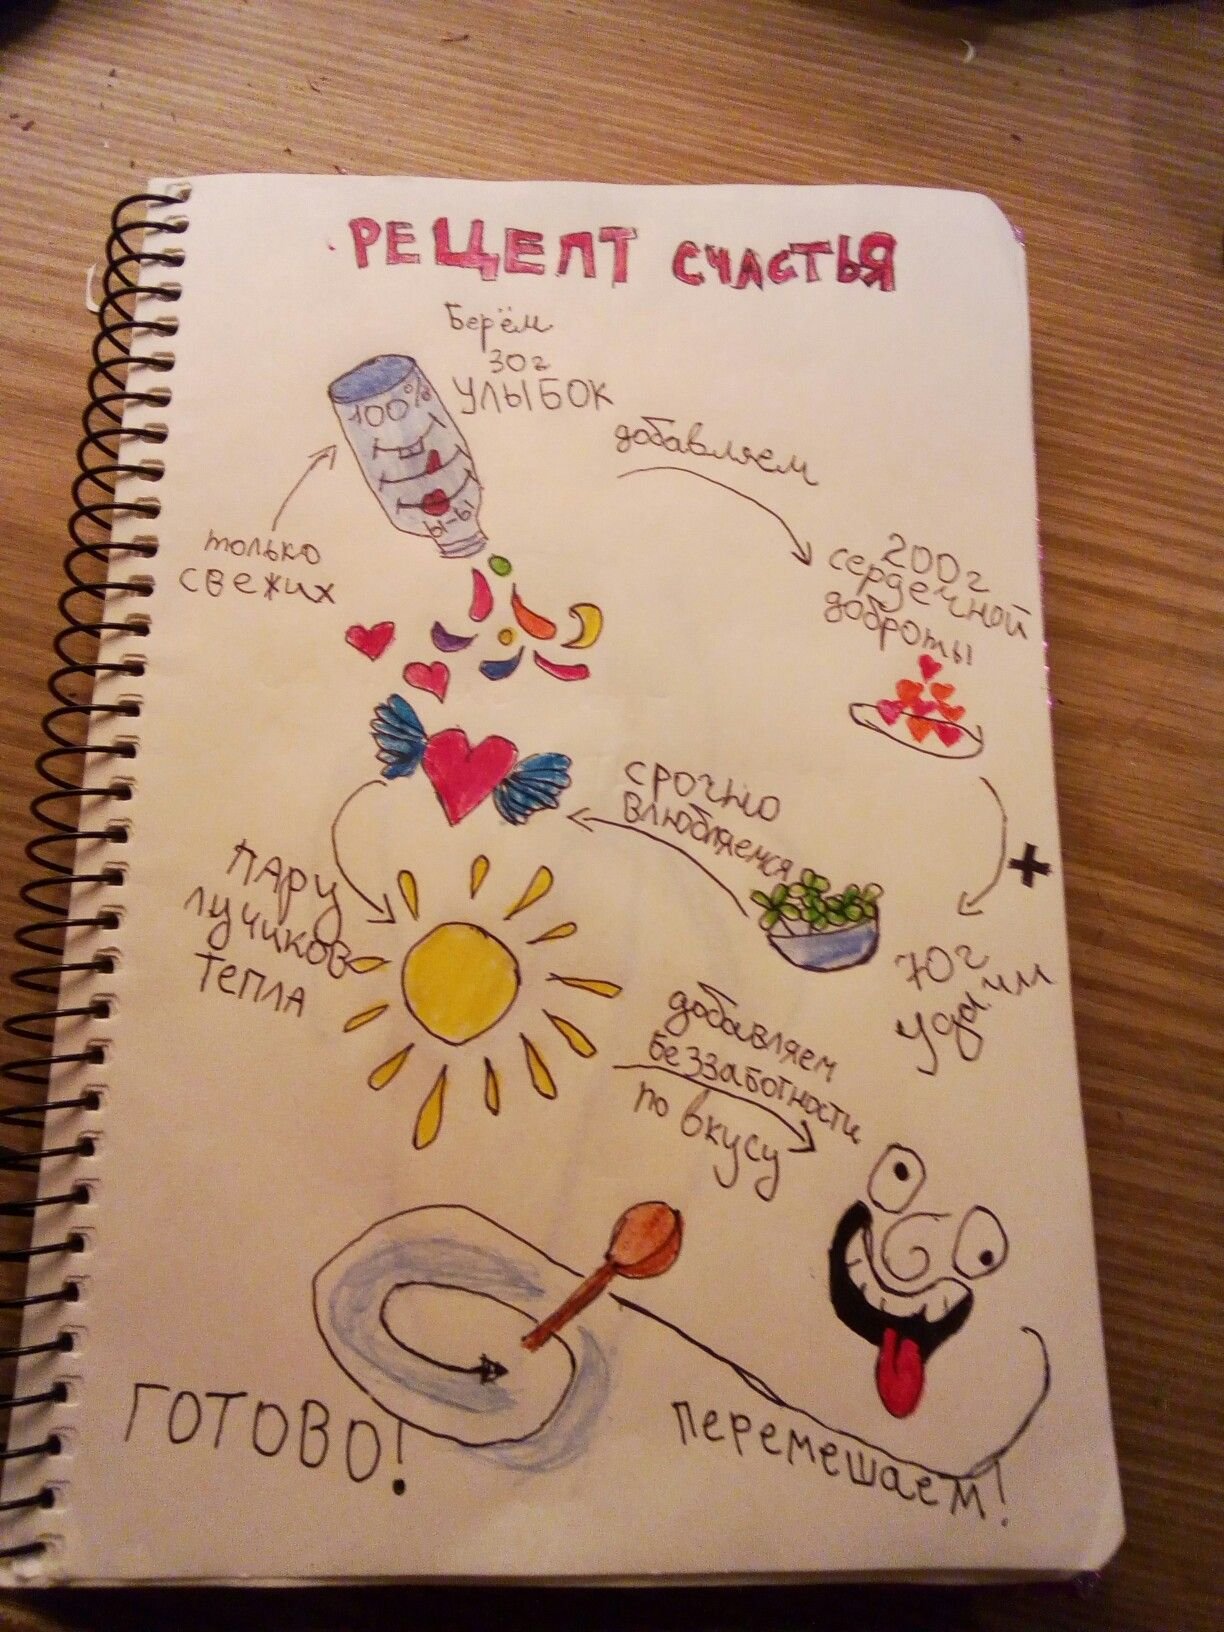 РЕЦЕПТ СЧАСТЬЯ
Берём
30г
УЛЫБОК
100%
Ы-Ы
только
свежих
добавляем
200г
сердечной
доброты
+
70г
удачи
срочно
влюбляемся
ПАРУ
лучиков
ТЕПЛА
добавляем
беззаботности
по вкусу
перемешаем!
ГОТОВО!